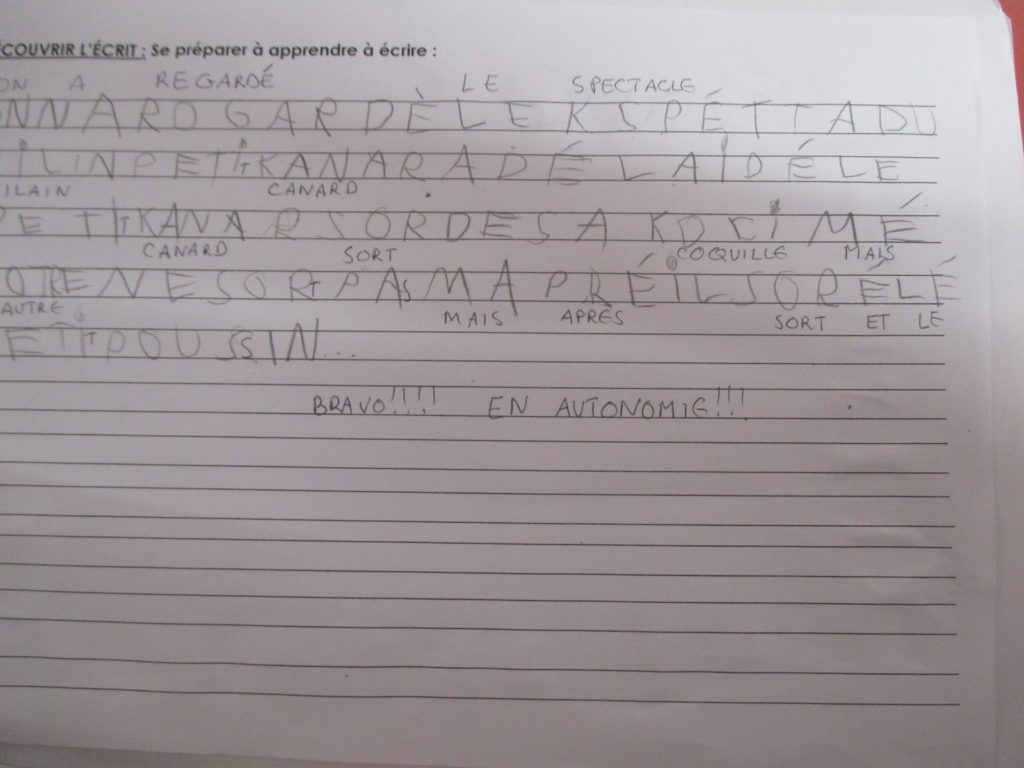 COUVRIR L'ÉCRIT : Se préparer à apprendre à écrire :
ON A REGARDÉ LE SPECTACLE
NNAROGARDÈLEKSPÉTTADU
ILINPETITKANARADÉLAIDÉLE
ILAIN CANARD
PETITKANARSORDESAKOCIMÉ
CANARD SORT COQUILLE MAIS
OTRENESORTPASMAPRÉILSORÉLÉ
AUTRE MAIS APRÈS SORT ET LE
ETITPOUSSIN...
BRAVO!!!! EN AUTONOMIE!!!